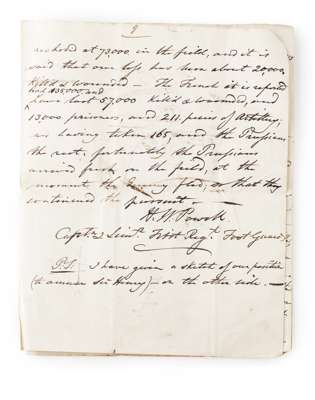 9
reckoned at 73000, in the field, and it is
said that our loss has been about 20,000
Kill'd & wounded — The French it is reported
had 135,000, and
have lost 57,000 Kill'd & wounded, and
13,000 prisoners, and 211, pieces of Artillery,
we having taken 165, and the Prussians
the rest, fortunately the Prussians
arrived fresh, on the field, at the
moment the Enemy fled, so that they
continued the pursuit. —
H. W. Powell
Capt. & Lieut. First Reg.t Foot Guards
P.S. I have given a sketch of our position
(to amuse Sir Henry) — on the other side. —